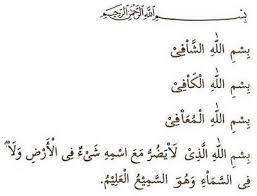 بِسْمِ اللّٰهِ الرَّحْمٰنِ الرَّحِيْمِ
بِسْمِ اللّٰهِ الشَّافِيْ
بِسْمِ اللّٰهِ الْكَافِيْ
بِسْمِ اللّٰهِ الْمُعَافِيْ
بِسْمِ اللّٰهِ الَّذِيْ لَايَضُرُّ مَعَ اسْمِهِ شَيْءٌ فِي الْأَرْضِ وَلَا
فِي السَّمَاءِ وَهُوَ السَّمِيْعُ الْعَلِيْمُ.